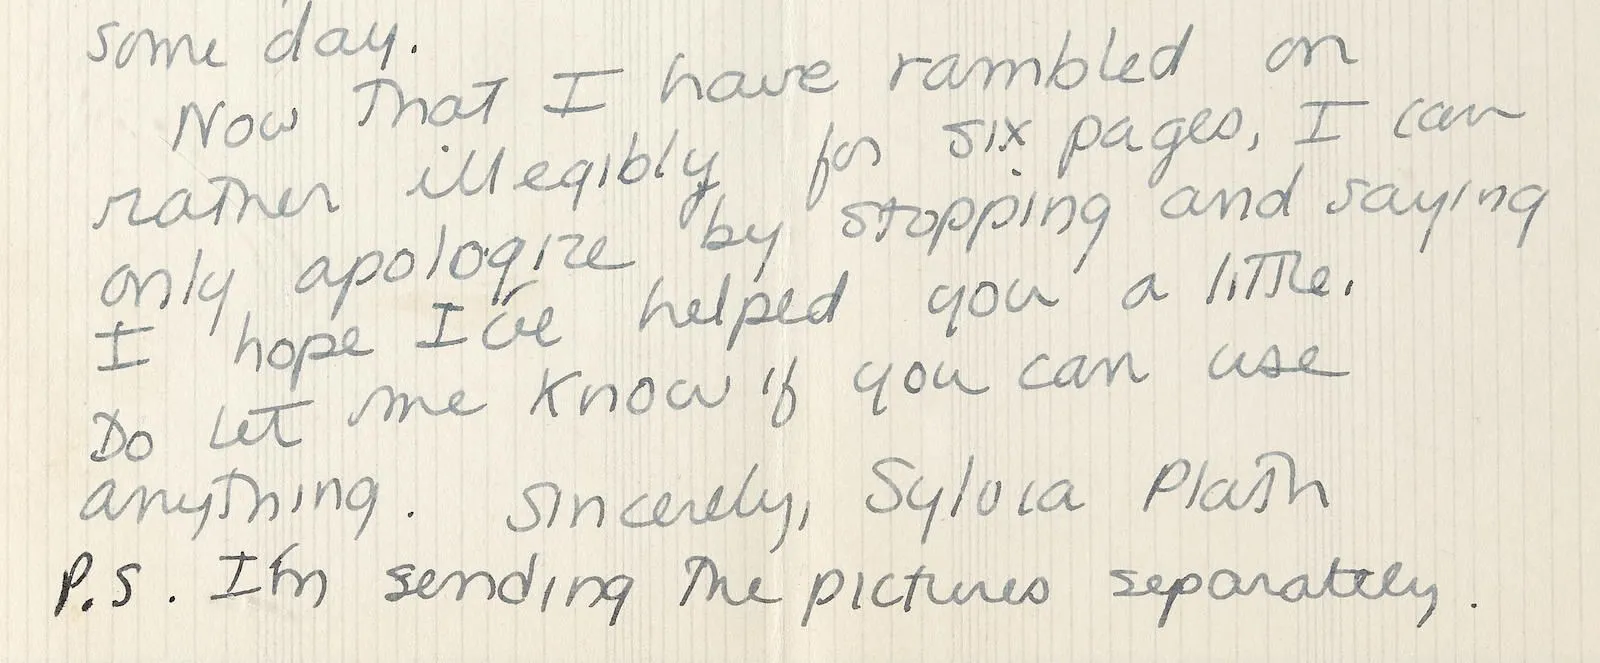 some day.
Now that I have rambled on
rather illegibly for six pages, I can
only apologize by stopping and saying
I hope I've helped you a little.
Do let me know if you can use
anything. Sincerely, Sylvia Plath
P.S. I'm sending the pictures separately.